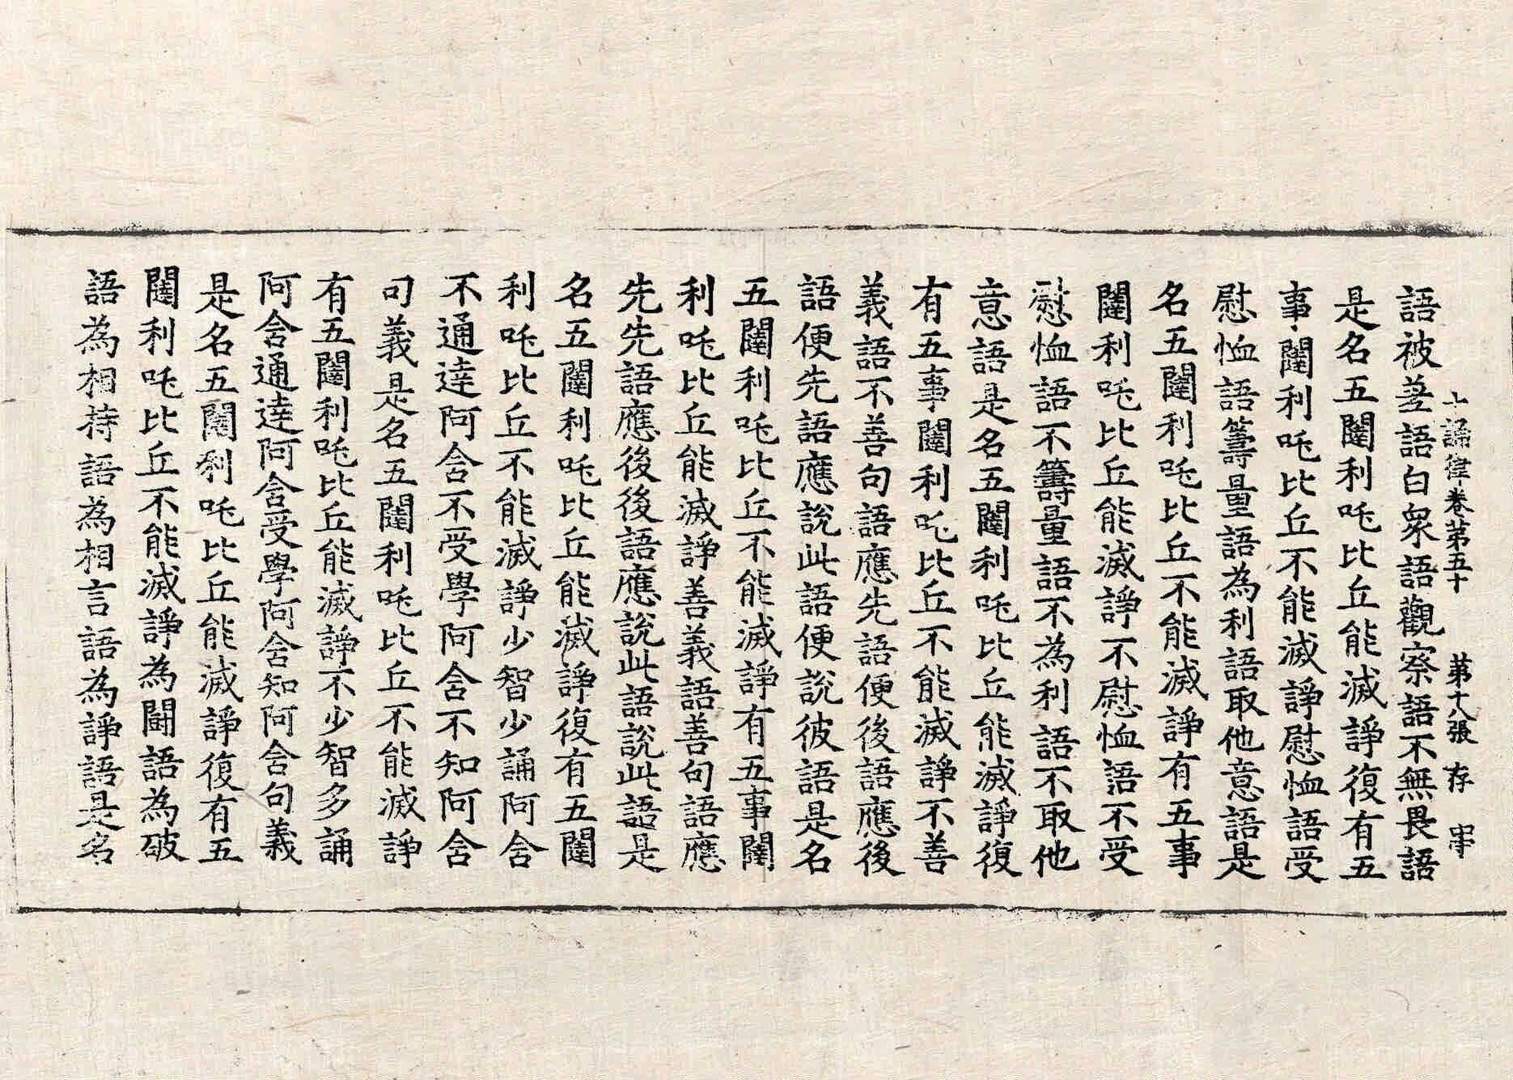 十誦律卷第五十　第十八張　存　
語被羞語白衆語觀察語不無畏語
是名五闥利吒比丘能滅諍復有五
事闥利吒比丘不能滅諍慰恤語受
慰恤語籌量語為利語取他意語是
名五闥利吒比丘不能滅諍有五事
闥利吒比丘能滅諍不慰恤語不受
慰恤語不籌量語不為利語不取他
意語是名五闥利吒比丘能滅諍復
有五事闥利吒比丘不能滅諍不善
義語不善句語應先語便後語應後
語便先語應說此語便說彼語是名
五闥利吒比丘不能滅諍有五事闥
利吒比丘能滅諍善義語善句語應
先先語應後後語應說此語說此語是
名五闥利吒比丘能滅諍復有五闥
利吒比丘不能滅諍少智少誦阿含
不通達阿含不受學阿含不知阿含
句義是名五闥利吒比丘不能滅諍
有五闥利吒比丘能滅諍不少智多誦
阿含通達阿含受學阿含知阿含句義
是名五闥利吒比丘能滅諍復有五
闥利吒比丘不能滅諍為鬪語為破
語為相持語為相言語為諍語是名